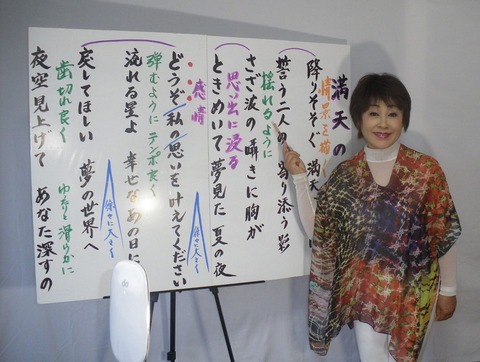 満天の
情景を描く
降りそそぐ 満天
誓う二人の 寄り添う影
揺れるように
さざ波の囁きに胸が
思い出に浸る
ときめいて夢見た 夏の夜
感情
どうぞ私の思いを叶えてください
弾むようにテンポ良く
流れる星よ 幸せなあの日に
徐々に大きく
戻してほしい 夢の世界へ
徐々に大きく
歯切れ良く ゆったり滑らかに
夜空見上げて あなた深すの